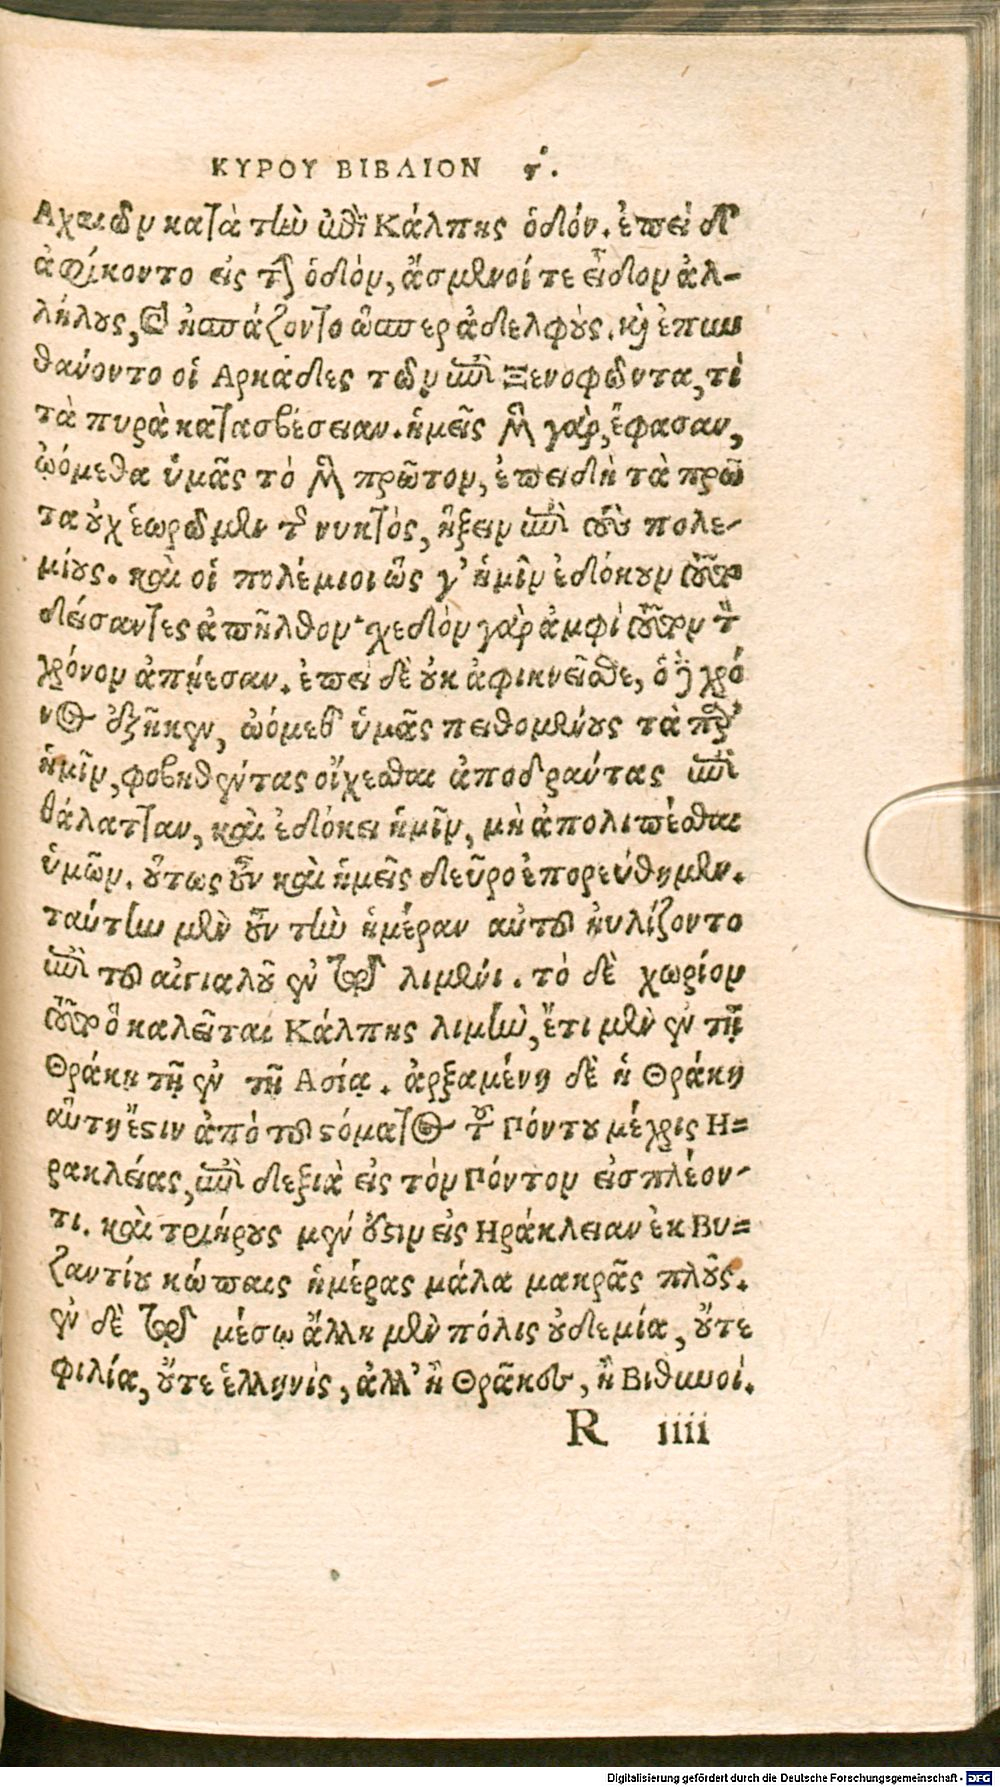 ΚΥΡΟΥ ΒΙΒΛΙΟΝ ϛʹ.
Αχαιῶν κατὰ τὴν ἐπὶ Κάλπης ὁδόν. ἐπεὶ δ'
ἀφίκοντο εἰς τὴν ὁδὸν, ἄσμενοί τε εἶδον ἀλ-
λήλους, καὶ ἠσπάζοντο ὥσπερ ἀδελφούς. καὶ ἐπυν
θάνοντο οἱ Αρκάδες τῶν περὶ Ξενοφῶντα, τί
τὰ πυρὰ κατασβέσειαν. ἡμεῖς μὲν γὰρ, ἔφασαν,
ᾠόμεθα ὑμᾶς τὸ μὲν πρῶτον, ἐπειδὴ τὰ πρῶ
τα οὐχ ἑωρῶμεν τῆς νυκτὸς, ἥξειν ἐπὶ τοὺς πολε-
μίους. καὶ οἱ πολέμιοι ὥς γ' ἡμῖν ἐδόκουν τοῦτο
δείσαντες ἀπῆλθον· χεδὸν γὰρ ἀμφὶ τοῦτον τὸν
χρόνον ἀπῄεσαν. ἐπεὶ δὲ οὐκ ἀφικνεῖσθε, ὁ δὲ χρό
νος ἐξῆκεν, ᾠόμεθ' ὑμᾶς πειθομένους τὰ παρ'
ἡμῖν, φοβηθέντας οἴχεσθαι ἀποδράντας ἐπὶ
θάλατταν, καὶ ἐδόκει ἡμῖν, μὴ ἀπολιπέσθαι
ὑμῶν. οὕτως οὖν καὶ ἡμεῖς δεῦρο ἐπορεύθημεν.
ταύτην μὲν οὖν τὴν ἡμέραν αὐτοῦ ηὐλίζοντο
ἐπὶ τοῦ αἰγιαλοῦ ἐν τῷ λιμένι. τὸ δὲ χωρίον
τοῦτο ὃ καλεῖται Κάλπης λιμὴν, ἔτι μὲν ἐν τῇ
Θράκῃ τῇ ἐν τῇ Ασίᾳ. ἀρξαμένη δὲ ἡ Θράκη
αὕτη ἔστιν ἀπὸ τοῦ στόματος τοῦ Πόντου μέχρις Η=
ρακλείας, ἐπὶ δεξιὰ εἰς τὸν Πόντον εἰσπλέον-
τι. καὶ τριήρους μέν ἐστιν εἰς Ηράκλειαν ἐκ Βυ=
ζαντίου κώπαις ἡμέρας μάλα μακρᾶς πλοῦς.
ἐν δὲ τῷ μέσῳ ἄλλη μὲν πόλις οὐδεμία, οὔτε
φιλία, οὔτε ἑλληνὶς, ἀλλ' ἢ Θρᾷκες, ἢ Βιθυνοί.
R iiii
Digitalisierung gefördert durch die Deutsche Forschungsgemeinschaft - DFG